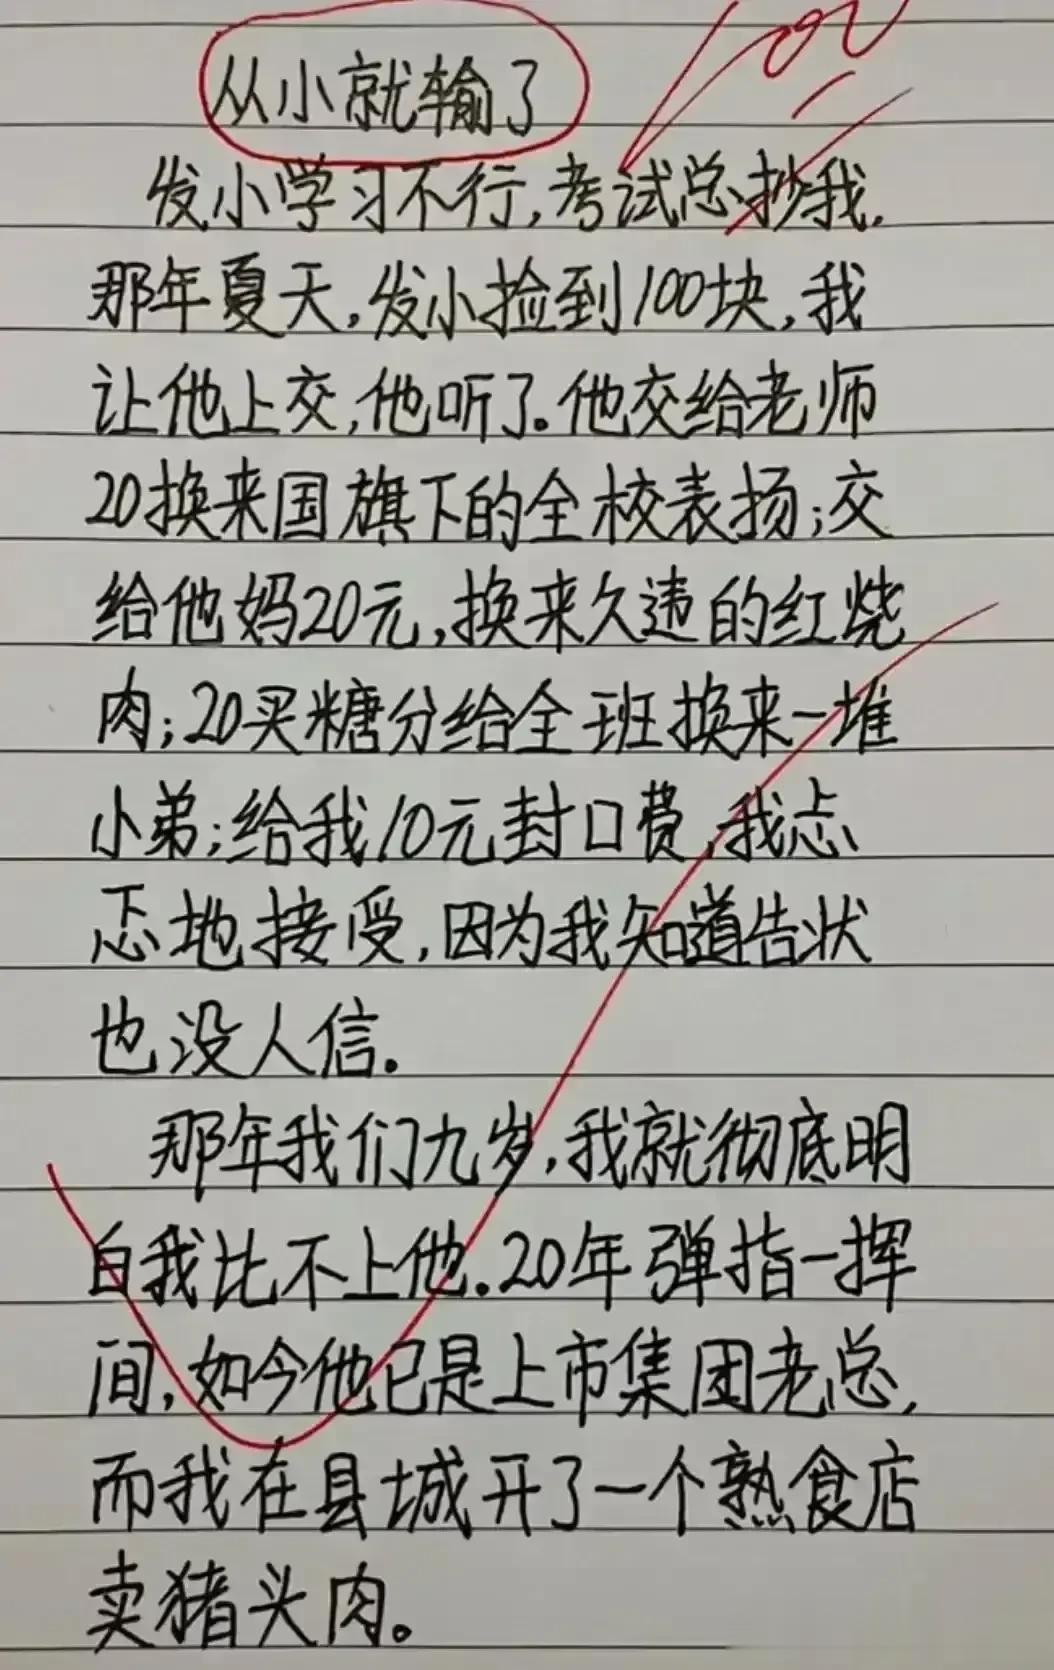 从小就输了
100
发小学习不行,考试总抄我,
那年夏天,发小捡到100块,我
让他上交,他听了。他交给老师
20换来国旗下的全校表扬;交
给他妈20元,换来久违的红烧
肉;20买糖分给全班换来一堆
小弟;给我10元封口费,我忐
忑地接受,因为我知道告状
也没人信.
那年我们九岁,我就彻底明
白我比不上他.20年弹指一挥
间,如今他已是上市集团老总,
而我在县城开了一个熟食店
卖猪头肉。